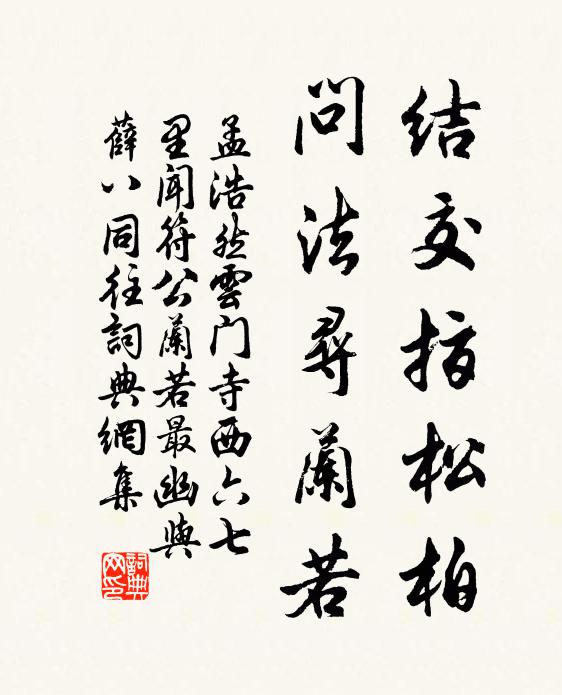 结交指松柏
问法寻蘭若
孟浩然雲门寺西六七
里闻符公蘭若最幽與
薛八同往詞典網集
詞典
网印